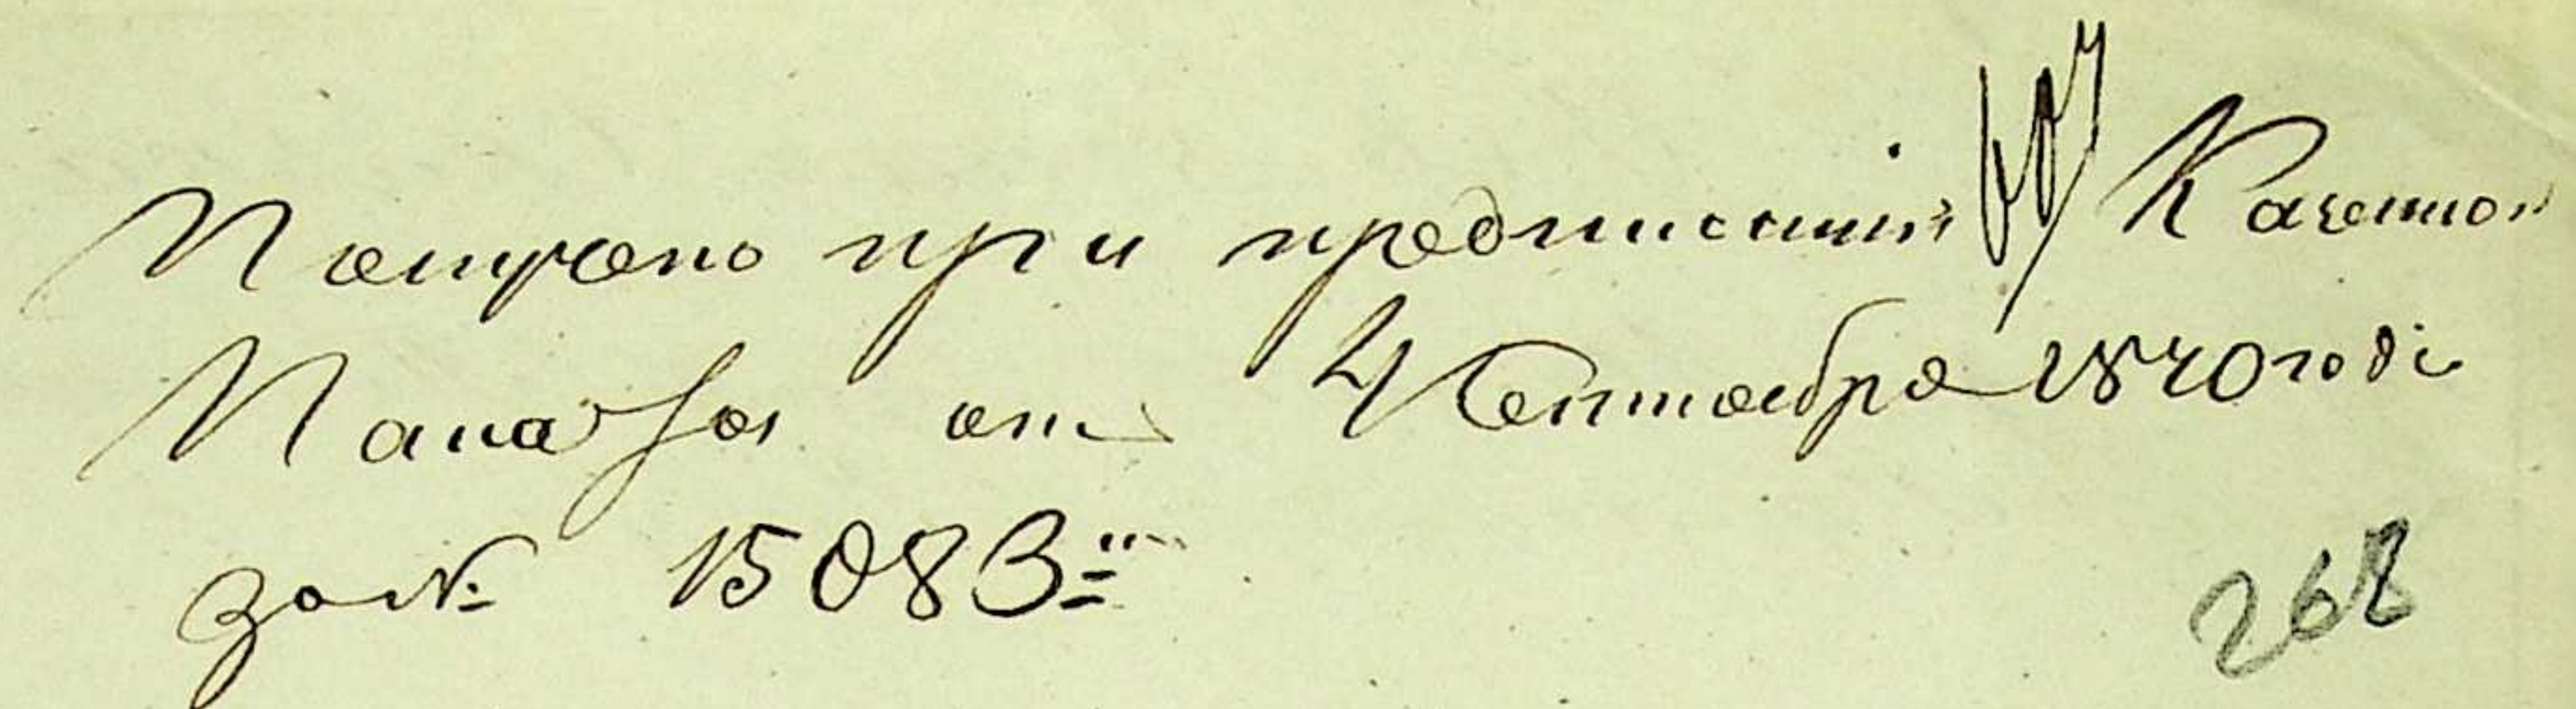 Получено при предписанiи Казенной
Палаты от 4 Сентября 1840 года
за № 15083
268